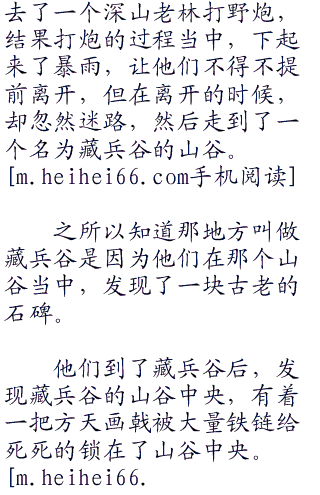 去了一个深山老林打野炮，
结果打炮的过程当中，下起
来了暴雨，让他们不得不提
前离开，但在离开的时候，
却忽然迷路，然后走到了一
个名为藏兵谷的山谷。
[m.heihei66.com手机阅读]
之所以知道那地方叫做
藏兵谷是因为他们在那个山
谷当中，发现了一块古老的
石碑。
他们到了藏兵谷后，发
现藏兵谷的山谷中央，有着
一把方天画戟被大量铁链给
死死的锁在了山谷中央。
[m.heihei66.